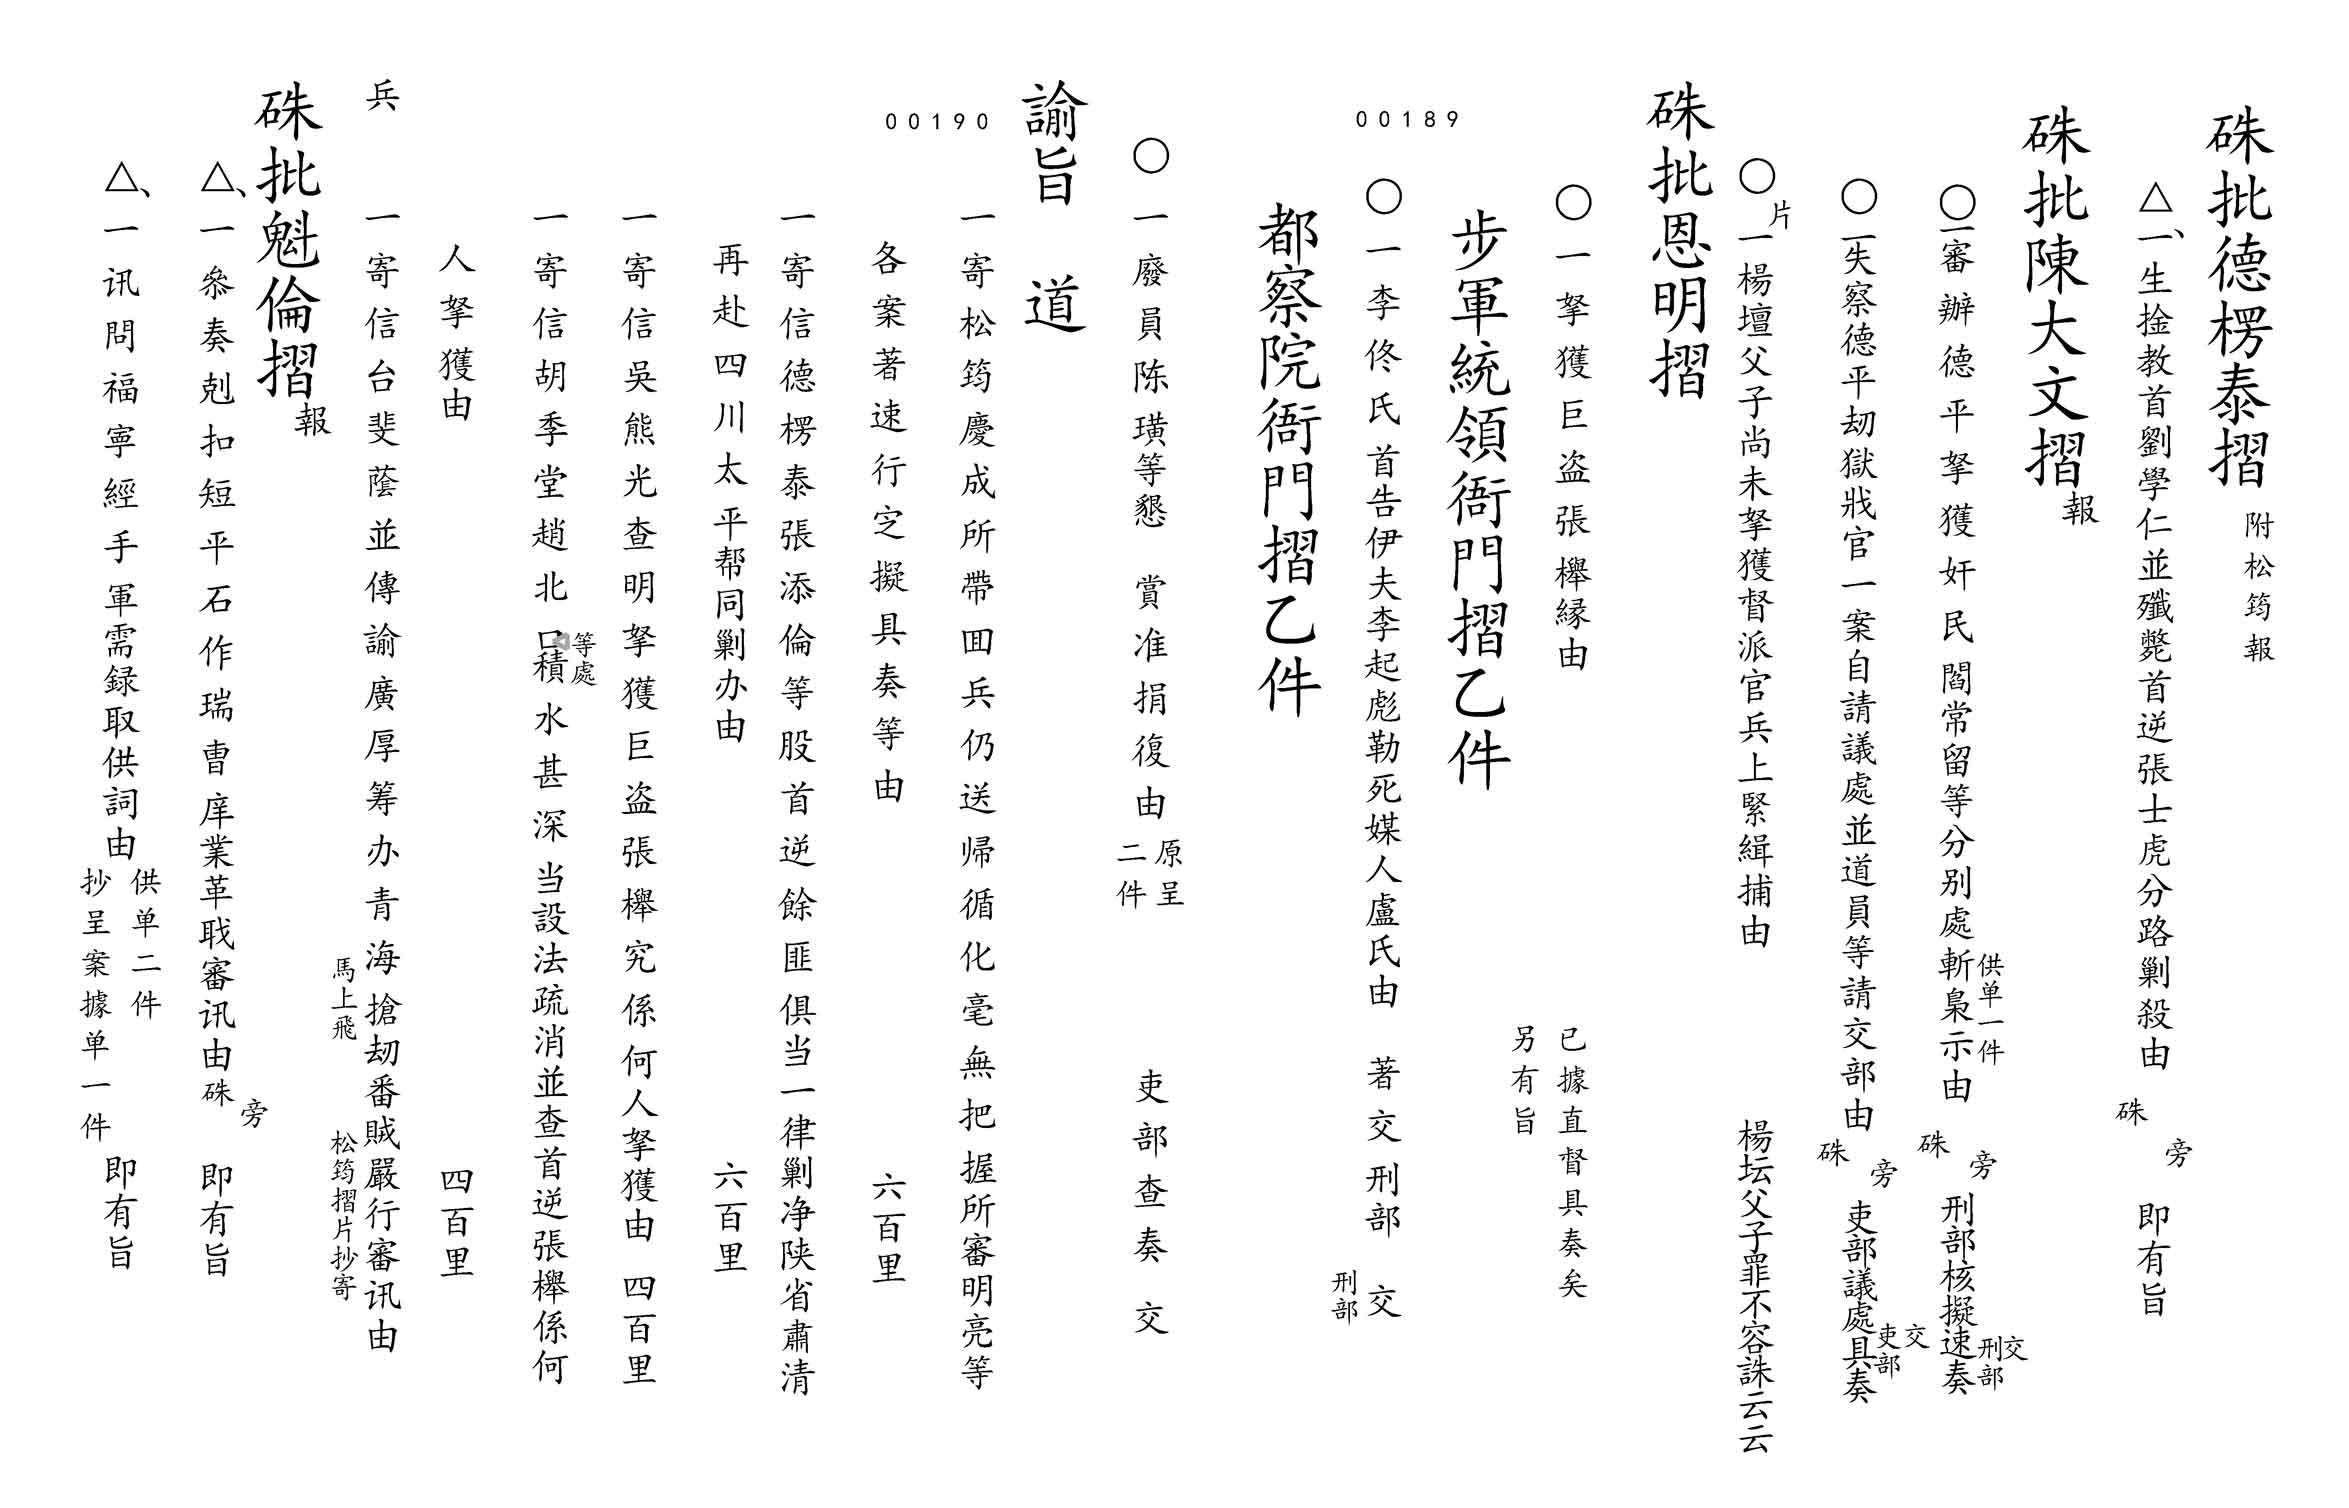 硃批德楞泰摺 附松筠報
△、一生擒教首劉學仁並殲斃首逆張士虎分路剿殺由 硃旁 即有旨
硃批陳大文摺 報
○一審辦德平拏獲奸民閻常留等分别處斬梟示由 供单一件 硃旁 刑部核擬速奏 交刑部
○一失察德平刼獄戕官一案自請議處並道員等請交部由 硃旁 吏部議處具奏 交吏部
○片一楊壇父子尚未拏獲督派官兵上緊緝捕由 楊坛父子罪不容誅云云
硃批恩明摺
○一拏獲巨盗張櫸縁由 已據直督具奏矣 另有旨
步軍統領衙門摺乙件
00189
○一李佟氏首告伊夫李起彪勒死媒人盧氏由 著交刑部 交刑部
都察院衙門摺乙件
○一廢員陈璜等懇 賞准捐復由 原呈二件 吏部查奏 交
諭旨 道
00190
一寄松筠慶成所帶囬兵仍送帰循化毫無把握所審明亮等
各案著速行定擬具奏等由 六百里
一寄信德楞泰張添倫等股首逆餘匪俱当一律剿净陕省肅清
再赴四川太平帮同剿办由 六百里
一寄信吳熊光查明拏獲巨盗張櫸究係何人拏獲由 四百里
一寄信胡季堂趙北口等處積水甚深当設法疏消並查首逆張櫸係何
人拏獲由 四百里
兵 一寄信台斐蔭並傳諭廣厚筹办青海搶刼番賊嚴行審讯由 馬上飛 松筠摺片抄寄
硃批魁倫摺 報
△、一參奏剋扣短平石作瑞曺庠業革戝審讯由 硃旁 即有旨
△、一讯問福寧經手軍需録取供詞由 供单二件 抄呈案據单一件 即有旨